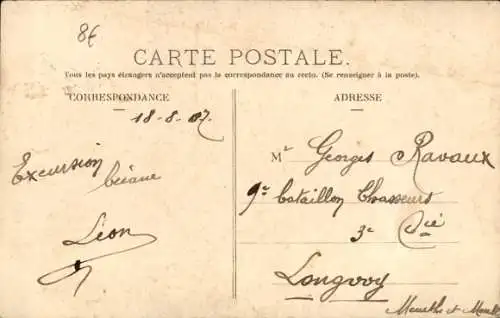 8€
CARTE POSTALE.
Tous les pays étrangers n'acceptent pas la correspondance au recto. (Se renseigner à la poste).
CORRESPONDANCE
ADRESSE
18-8-07
Excursion
Léon
Mr Georges Ravaux
9e bataillon Chasseurs
3e Cie
Longwy
Meurthe et Mosel